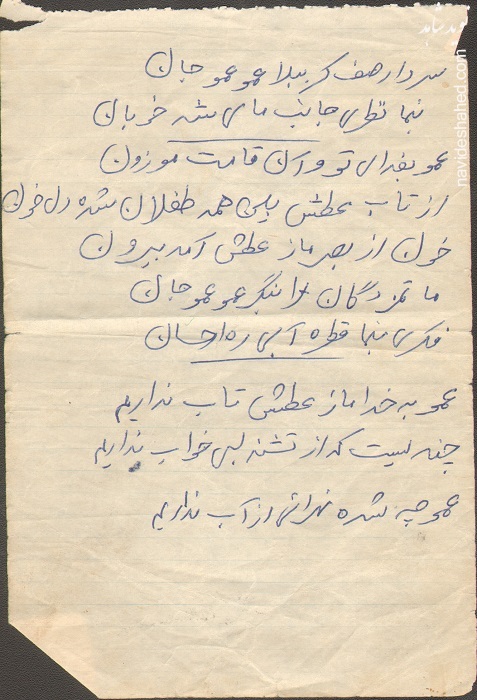 نوید شاهد
navideshahed.com
سردار صف کربلا عمو عمو جان
بنما نظری جانب ما ای شه خوبان
عمو بفدای تو و آن قامت موزون
از تاب عطش بین همه طفلان شده دل خون
خون از بصر ما ز عطش آمد بیرون
ما غمزدگان را بنگر عمو عمو جان
فکری بنما قطره آبی ره احسان
عمو به خدا ما ز عطش تاب نداریم
چند لیست که از تشنه لبی خواب نداریم
عمو چه شده نهراتی از آب نداریم